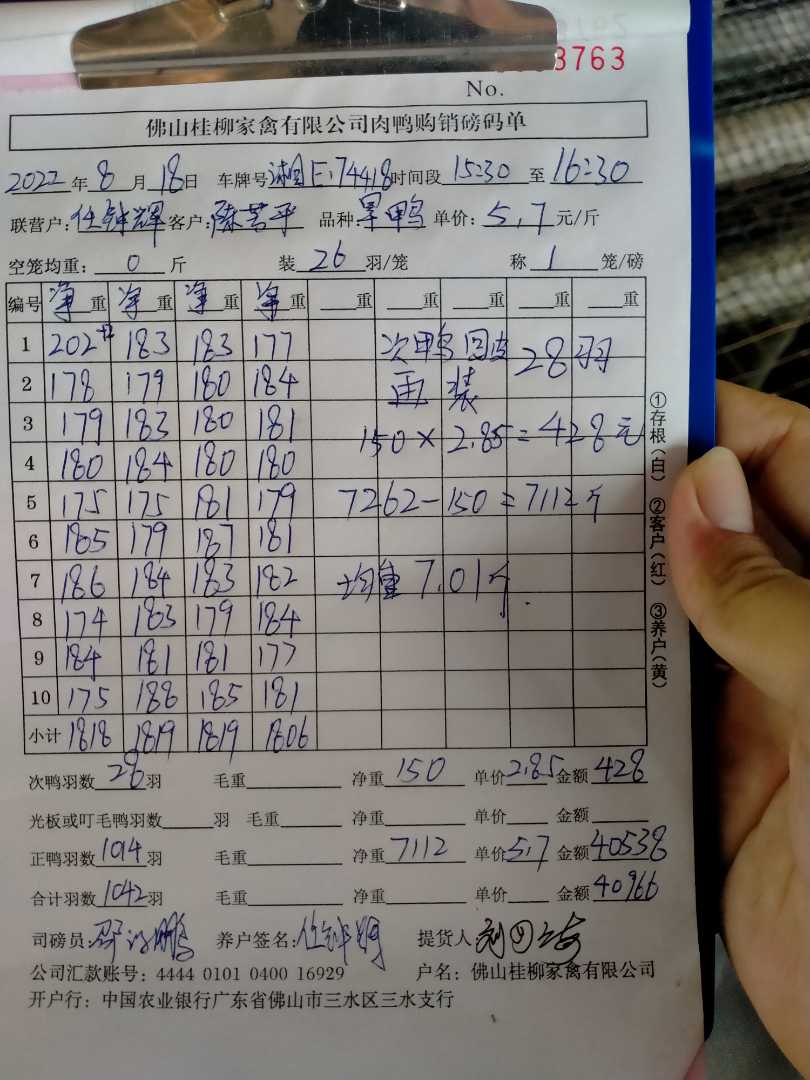 8763
No.
佛山桂柳家禽有限公司肉鸭购销磅码单
2022年8月18日 车牌号湘E·74418时间段 15:30 至 16:30
联营户:任钟辉 客户: 品种:旱鸭 单价:5.7元/斤
空笼均重: 0 斤 装 26 羽/笼 称 1 笼/磅
编号 净重 净重 净重 净重 重 重 重 重 重
1 202+2 183 183 177 次鸭 28羽
2 178 179 180 184 再装
3 179 183 180 181 150×2.85=428元
4 180 184 180 180
5 175 175 181 179 7262-150=7112斤
6 185 179 187 181
7 186 184 183 182 均重 7.01斤.
8 174 183 179 184
9 184 181 181 177
10 175 188 185 181
小计 1818 1819 1819 1806
次鸭羽数 28 羽 毛重 净重 150 单价 2.85 金额 428
光板或叮毛鸭羽数 羽 毛重 净重 单价 金额
正鸭羽数 1014 羽 毛重 净重 7112 单价 5.7 金额 40538
合计羽数 1042 羽 毛重 净重 单价 金额 40966
司磅员: 养户签名: 提货人
公司汇款账号: 4444 0101 0400 16929 户名: 佛山桂柳家禽有限公司
开户行: 中国农业银行广东省佛山市三水区三水支行
①存根(白) ②客户(红) ③养户(黄)